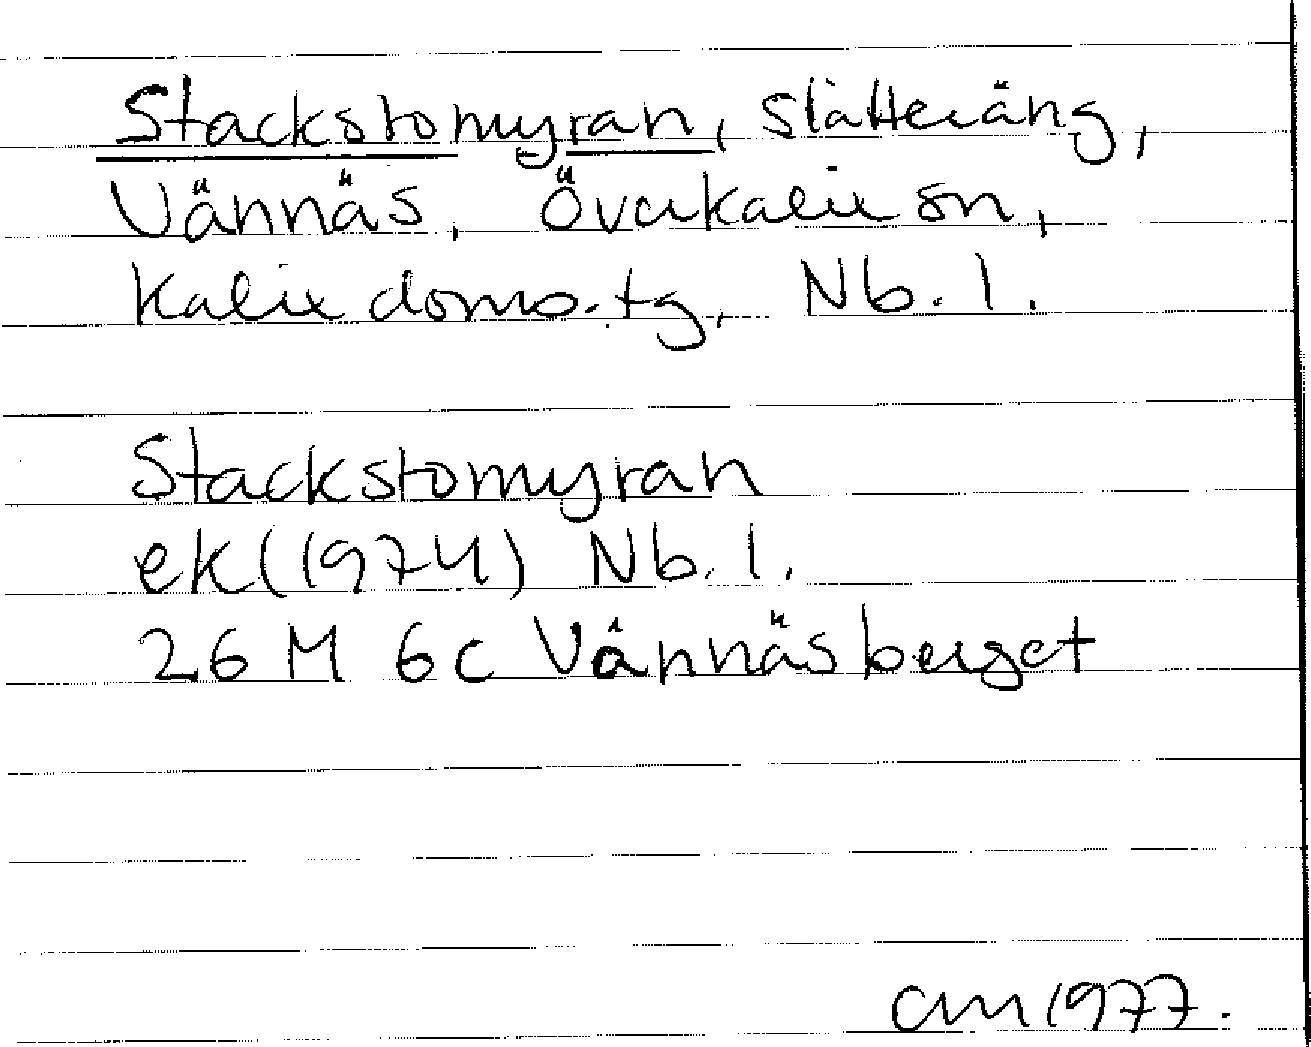 Stackstomyran, slätteräng,
Vännäs, Överkalix sn,
Kalix doms.tg, Nb. l.
Stackstomyran
ek (1974) Nb. l.
26 M 6c Vännäsberget
CM 1977.